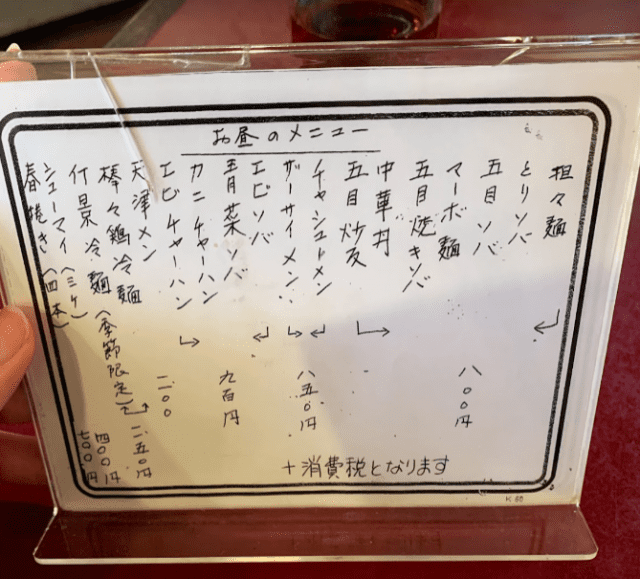 お昼のメニュー
担々麺
とりソバ
五目ソバ
マーボ麺
五目焼キソバ
中華丼
五目炒反
チャシュートメン
ザーサイメン
エビソバ
青菜ソバ
カニチャーハン
エビチャーハン
天津メン
棒々鶏冷麺
什景冷麺(季節限定)
シューマイ(三ケ)
春捲き(四本)
八〇〇円
八五〇円
九百円
一一〇〇
一二五〇円
四〇〇円
七〇〇円
+消費税となります